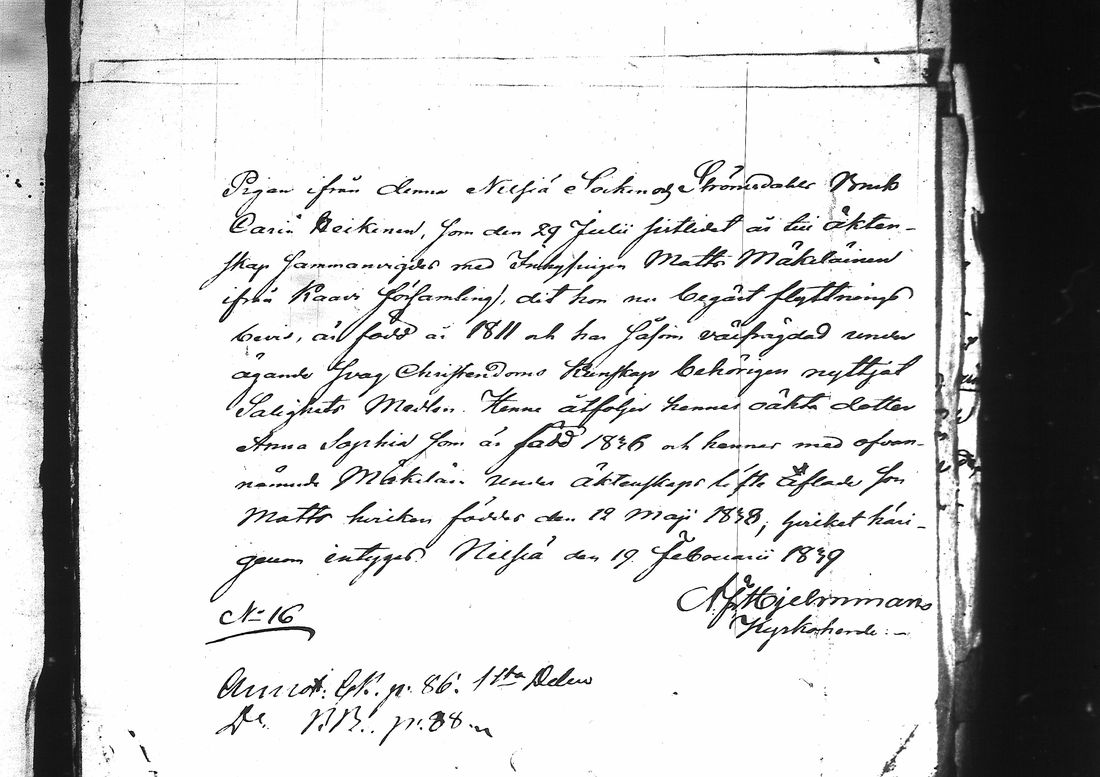 Pigan ifrån denna Nilsiä Socken och Strömsdahls Bruk
Carin Heikinen, som den 29 Julii sistledet år till äkten-
skap sammanvigdes med Inhysingen Matts Mäkeläinen
ifrån Kaavi Församling, dit hon nu begärt flyttnings
bevis, är född år 1811 och har såsom välfrägdad under
ägande svag Christendoms Kunskap behörigen nyttjat
Salighets Medlen. Henne åtföljer hennes oäkta dotter
Anna Sophia som är född 1836 och hennes med ofvan-
nämnde Mäkeläin under äktenskaps löfte aflade Son
Matts hvilken föddes den 12 Maji 1838, hvilket häri-
genom intygas. Nilsiä den 19 Februarii 1839
Hjelmmans
Kyrkoherde.
No 16
Annot. CK. p. 86. 1sta Delen
Do B.B. p. 88.